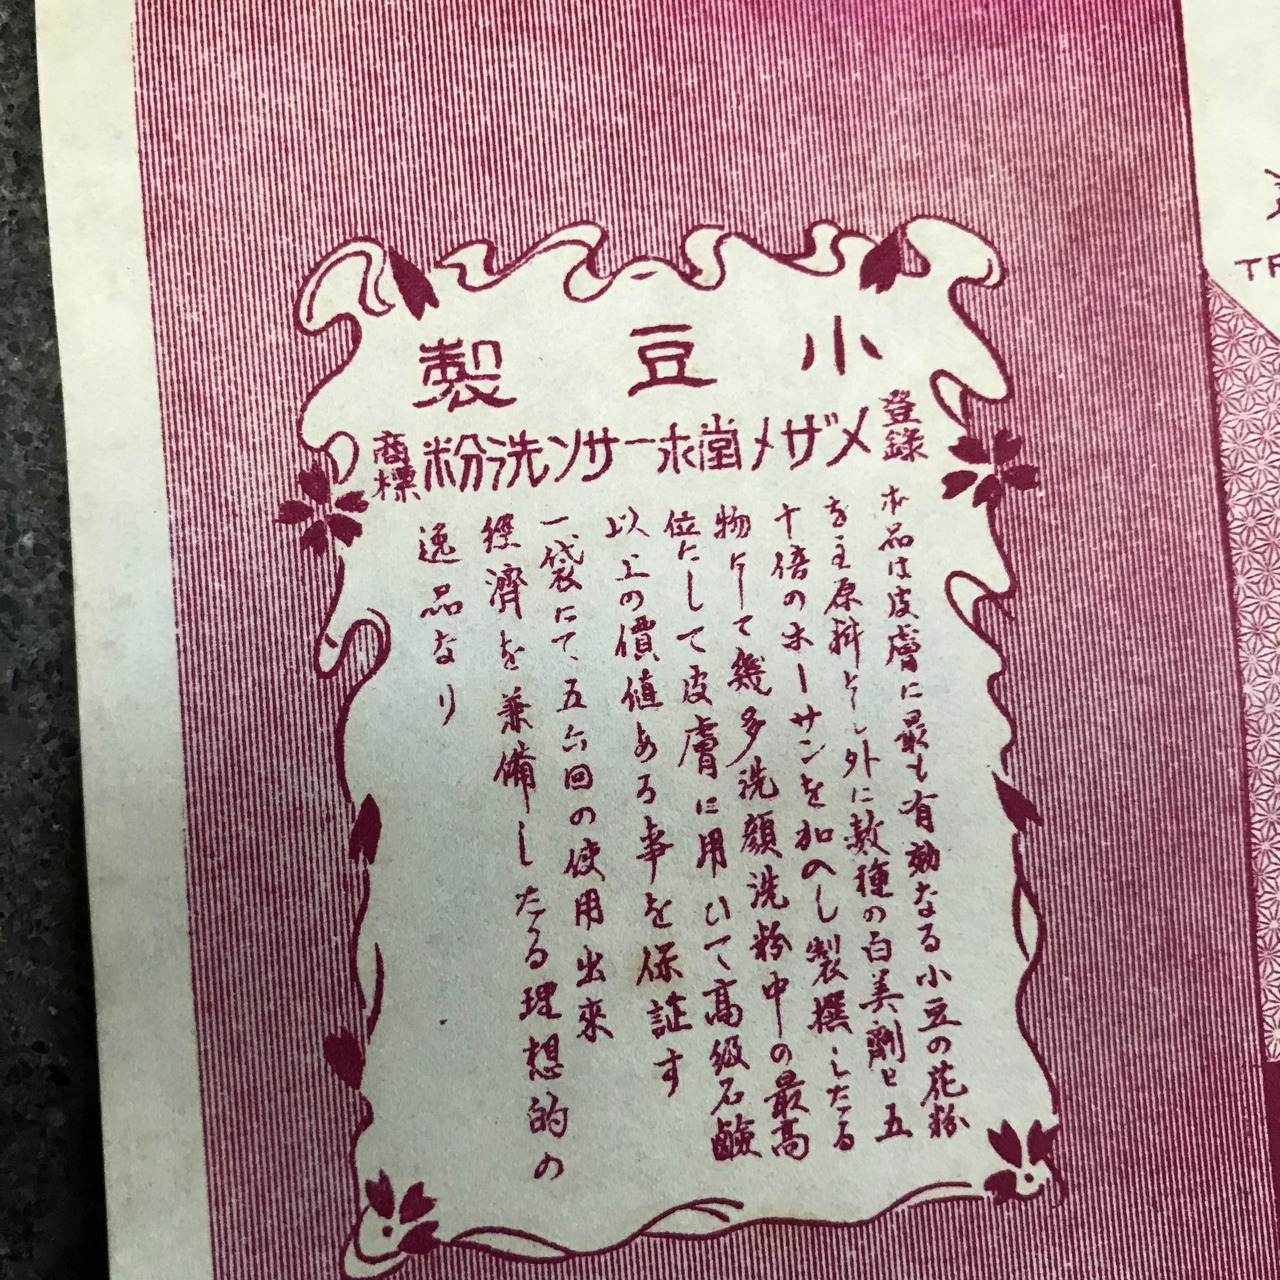 小豆製
登録
メザメ堂ホーサン洗粉
商標
本品は皮膚に最も有効なる小豆の花粉
を主原料とし外に数種の白美剤と五
十倍のホーサンを加へし製撰したる
物にして幾多洗顔洗粉中の最高
位にして皮膚に用いて高級石鹸
以上の價値ある事を保証す
一袋にて五六回の使用出來
經濟を兼備したる理想的の
逸品なり